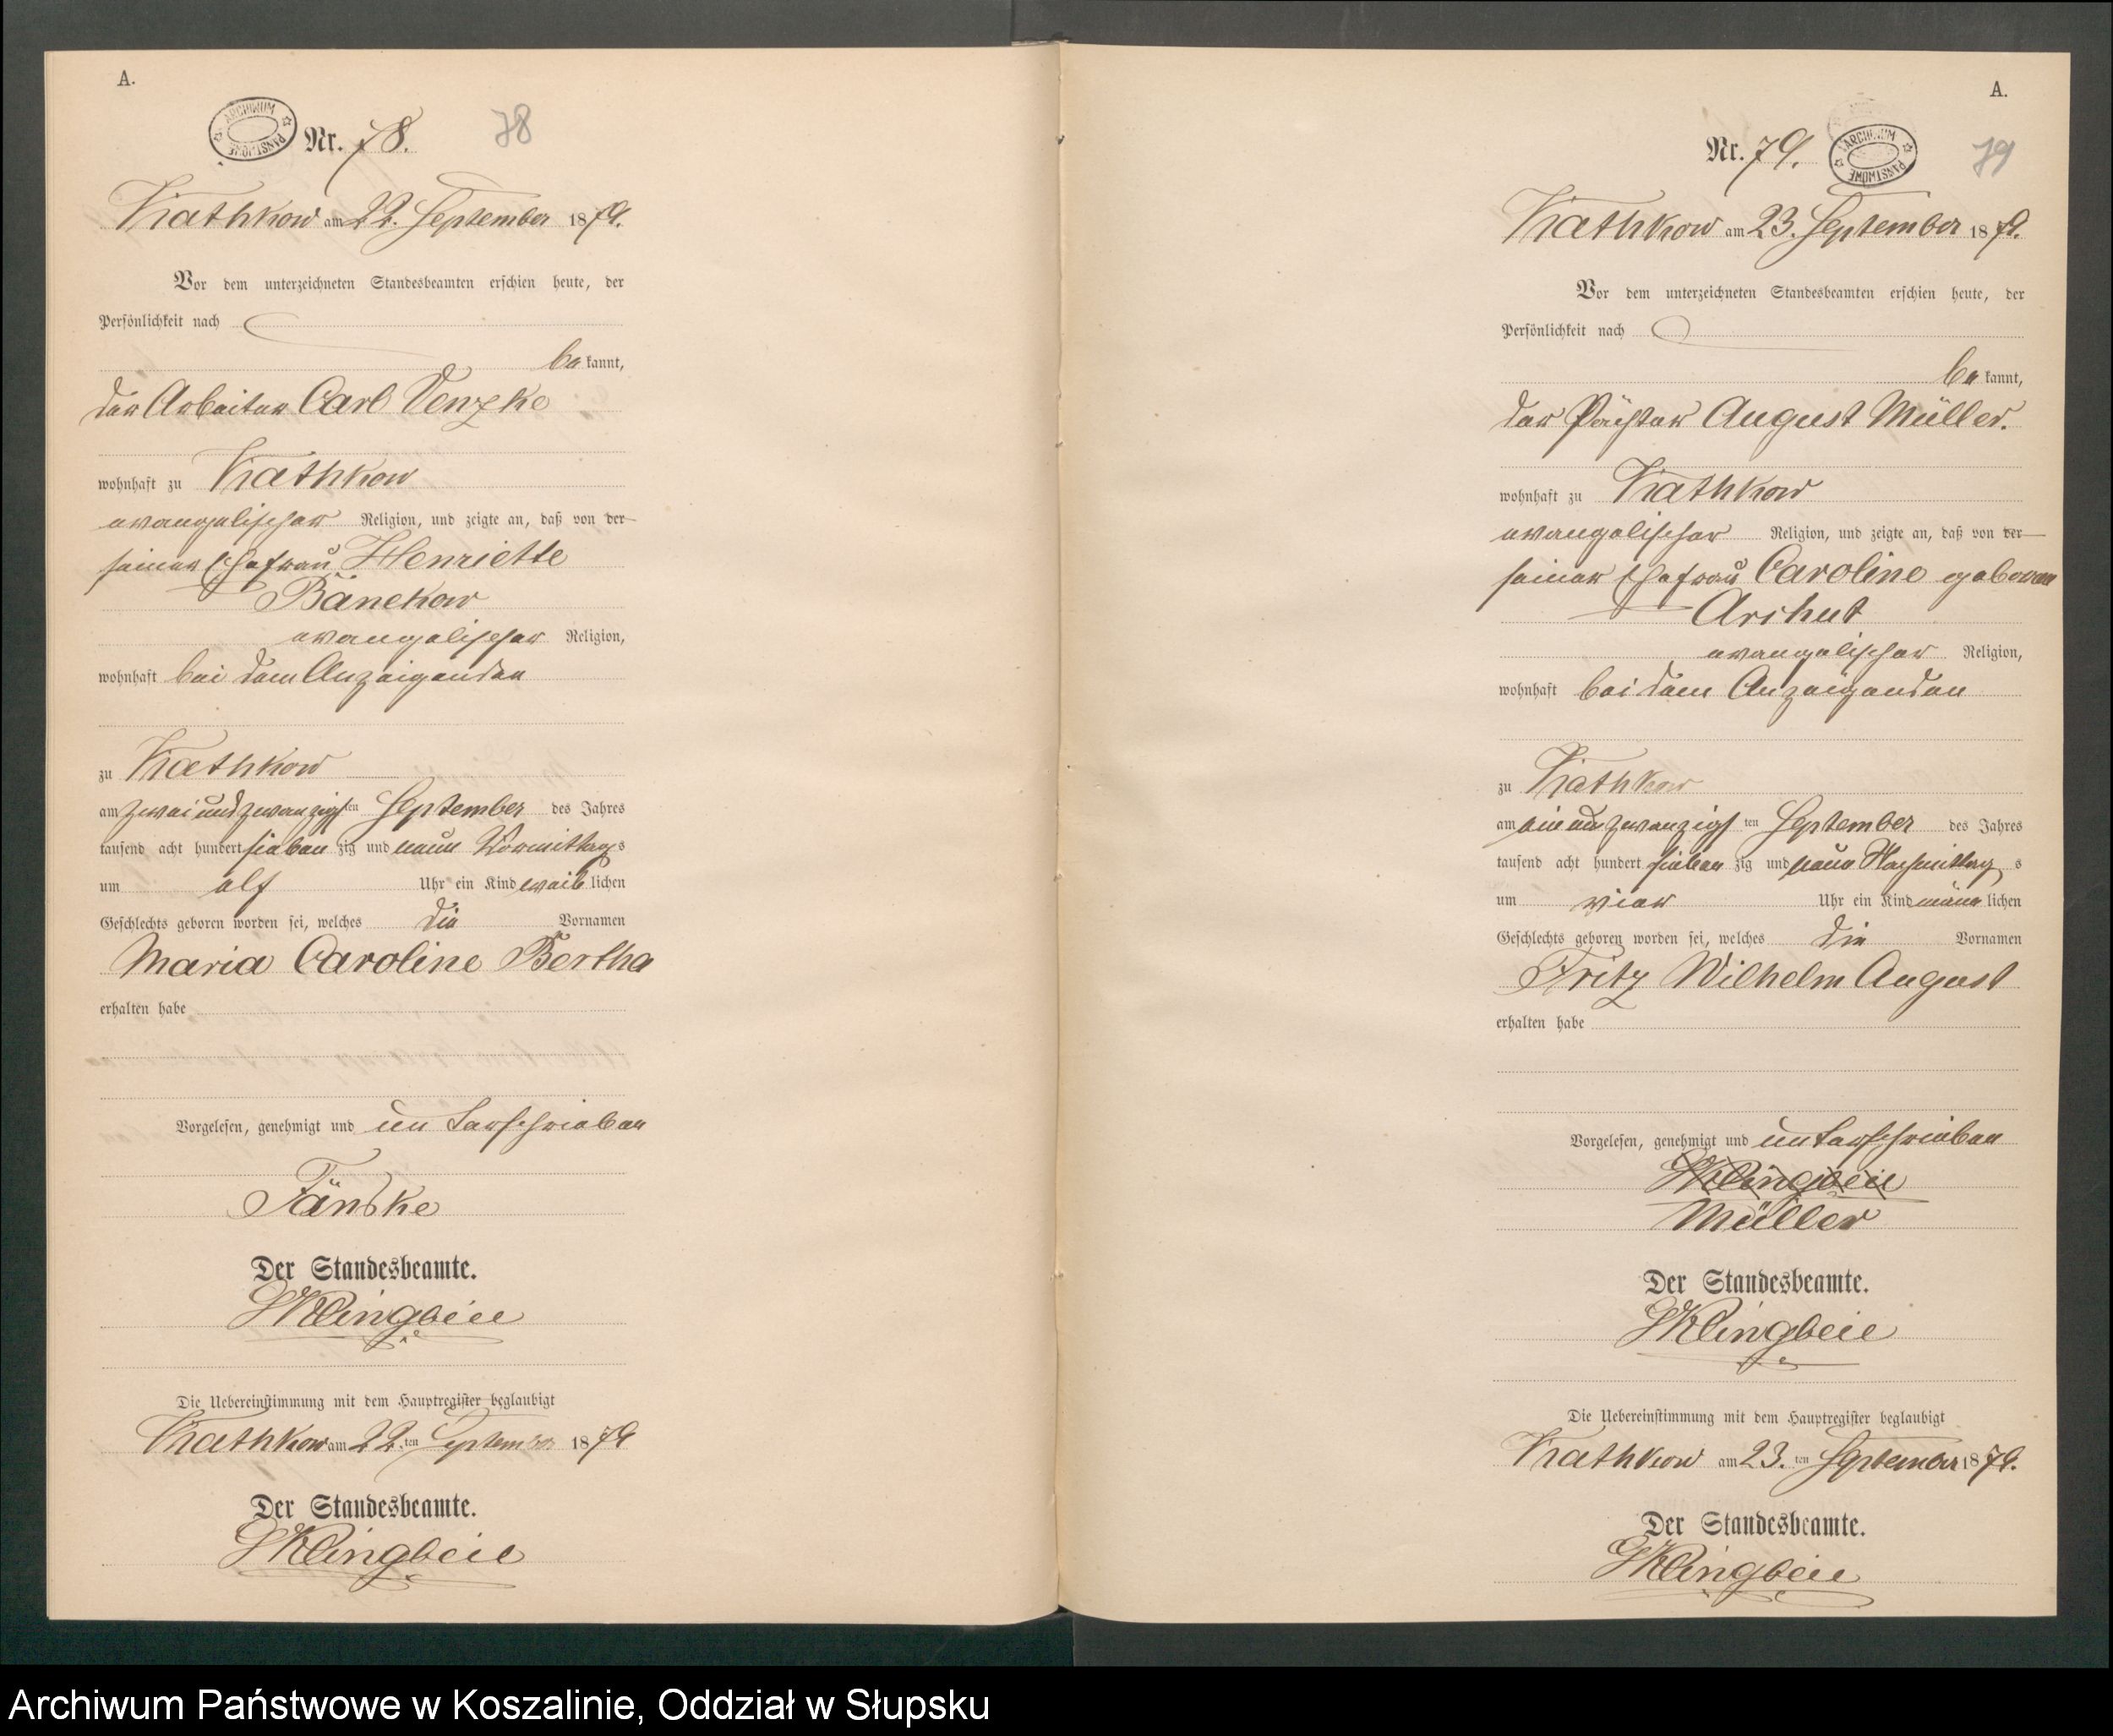 A.
ARCHIWUM PAŃSTWOWE
Nr. 78.
78
Kathkow am 22. September 1879.
Vor dem unterzeichneten Standesbeamten erschien heute, der
Persönlichkeit nach
be kannt,
der Arbeiter Carl
wohnhaft zu Kathkow
evangelischer Religion, und zeigte an, daß von der
seiner Ehefrau Henriette
Bänekow
evangelischer Religion,
wohnhaft bei dem Anzeigenden
zu Kathkow
am zwei und zwanzigsten September des Jahres
tausend acht hundert sieben zig und neun Vormittags
um elf Uhr ein Kind weib lichen
Geschlechts geboren worden sei, welches die Vornamen
Maria Caroline Bertha
erhalten habe
Vorgelesen, genehmigt und unterschrieben
Der Standesbeamte.
Klingbeil
Die Uebereinstimmung mit dem Hauptregister beglaubigt
Kathkow am 22. ten September 1879
Der Standesbeamte.
Klingbeil
A.
Nr. 79.
ARCHIWUM PAŃSTWOWE
79
Kathkow am 23. September 1879.
Vor dem unterzeichneten Standesbeamten erschien heute, der
Persönlichkeit nach
be kannt,
der Pächter August Müller.
wohnhaft zu Kathkow
evangelischer Religion, und zeigte an, daß von der
seiner Ehefrau Caroline geboren
Archut
evangelischer Religion,
wohnhaft bei dem Anzeigenden
zu Kathkow
am ein und zwanzigsten September des Jahres
tausend acht hundert sieben zig und neun Nachmittag s
um vier Uhr ein Kind männ lichen
Geschlechts geboren worden sei, welches die Vornamen
Fritz Wilhelm August
erhalten habe
Vorgelesen, genehmigt und unterschrieben
Klingbeil
Müller
Der Standesbeamte.
Klingbeil
Die Uebereinstimmung mit dem Hauptregister beglaubigt
Kathkow am 23. ten September 1879.
Der Standesbeamte.
Klingbeil
Archiwum Państwowe w Koszalinie, Oddział w Słupsku